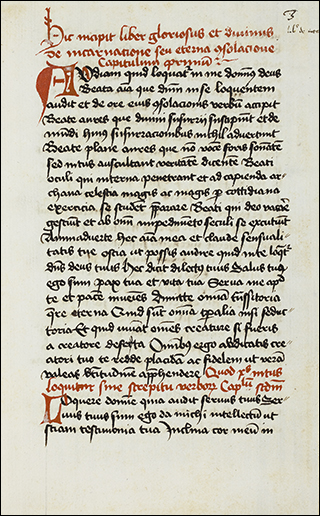 3
Hic incipit liber gloriosus et diuinus
de incarnacione seu eterna ꝯsolacione
Capitulum primum
Audiam quid loquat᷑ in me domin⁹ deus
Beata aīa que dn̄m in se loquentem
audit et de ore eius ꝯsolacionis verbū accipit
Beate aures que diuini susurrii suscipiūt et de
mūdi huius susurracionibus nichil aduertunt
Beate plane aures que nō vocē foris sonātē
sed intus auscultant veritatē dicentē Beati
oculi qui interna penetrant et ad capienda ar
chana celestia magis ac magis p̱ cottidiana
exercicia se student p̄parare Beati qui deo vacare
gestiūt et ab om̄i impedimēto seculi se excutiūt
Animaduerte hec aīa mea et claude sensuali
tatis tue ostia ut possis audire quid in te loqt᷑
dn̄s deus tuus Hec dicit dilectus tuus Salus tua
ego sum pax tua et vita tua Serua me apd̓
te et pacē inuenies Dimitte om̄ia trāsitoria
q̄re eterna Quid sūt om̄ia tp̄alia nisi seduc
toria Et quid iuuāt om̄es creature si fueris
a creatore deserta Om̄ibus ergo abdicatis cre
atori tuo te redde placidā ac fidelem ut verā
valeas bt̄itudinē app̄hendere Quod xp̄s intus
loquitur sine strepitu verboꝝ Capl̄m scd̄m
Loquere domine quia audit seruus tuus Ser
uus tuus sum ego da michi intellectū ut
sciam testimonia tua Inclina cor meū in